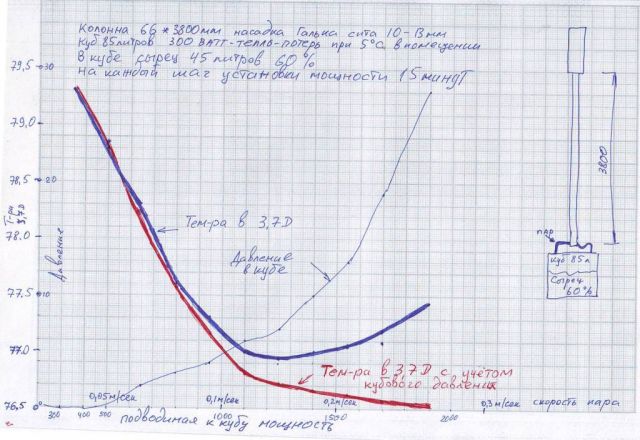 Колонна 66 * 3800мм насадка Галька сита 10-8мм
Куб 85литров 300 ВАТТ-тепло-потерь при 5°С в помещении
В кубе сырец 45 литров 60%
на каждый шаг установки мощности 15 минут
79,5 30
79,0
78,5 20
78,0
77,5 10
77,0
76,5 0
Т-ра 3,7D
Давление
Тем-ра в 3,7D
Давление
в кубе
Тем-ра в 3,7D с учётом
кубового давления
3800
пар
Куб 85л
Сырец
60%
0,05м/сек 0,1м/сек 0,2м/сек 0,3м/сек скорость пара
300 400 500 1000 1500 2000
подводимая к кубу мощность